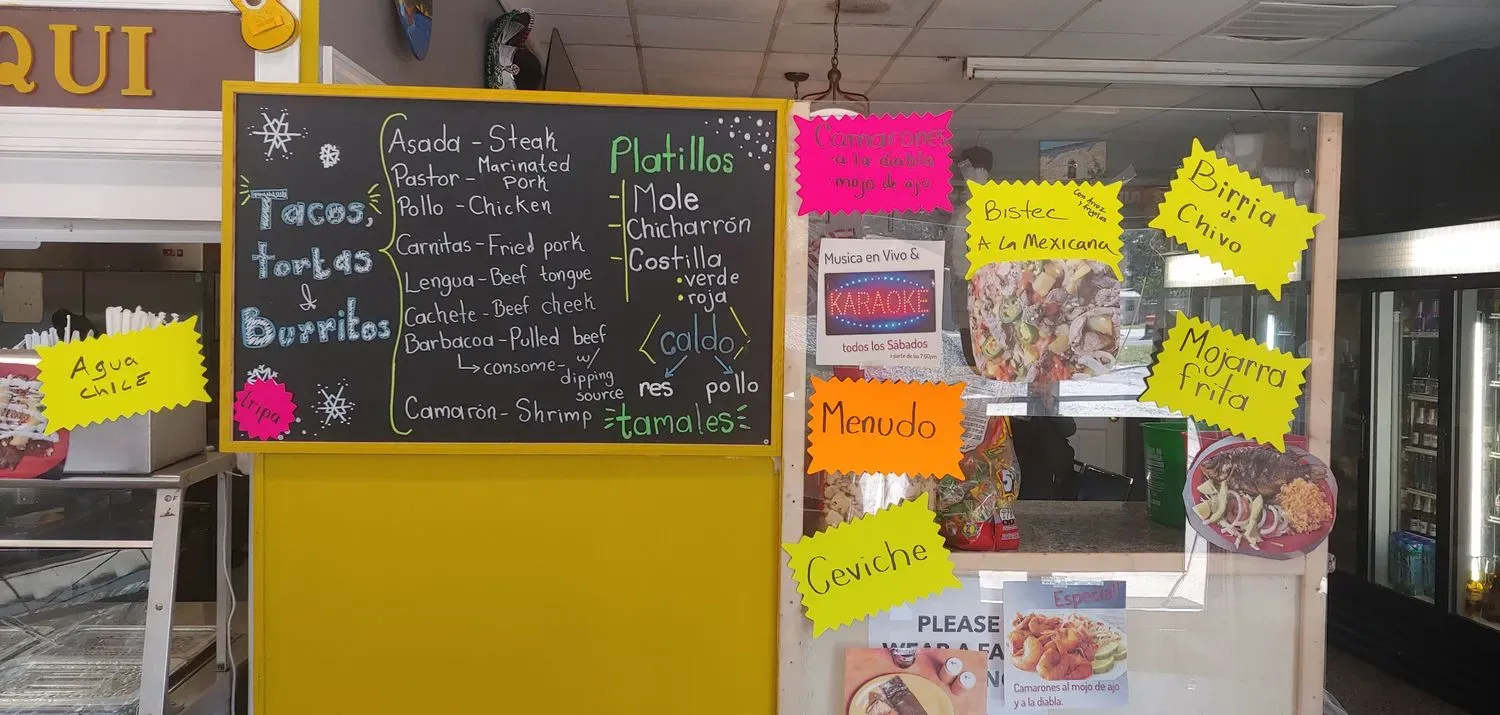 QUI
Agua
CHILE
Tacos,
tortas
&
Burritos
Tripa
Asada - Steak
Pastor - Marinated
Pork
Pollo - Chicken
Carnitas - Fried pork
Lengua - Beef tongue
Cachete - Beef cheek
Barbacoa - Pulled beef
consome - w/
dipping
source
Camarón - Shrimp
Platillos
- Mole
- Chicharrón
- Costilla
• verde
• roja
caldo
res pollo
tamales
Camarones
-a la diabla
-mojo de ajo
Musica en Vivo &
KARAOKE
todos los Sábados
a partir de las 7:00pm
Bistec
con Arroz
y frijoles
A La Mexicana
Birria
de
Chivo
Mojarra
frita
Menudo
Ceviche
PLEASE
WEAR A FA
Especial
Camarones al mojo de ajo
y a la diabla.